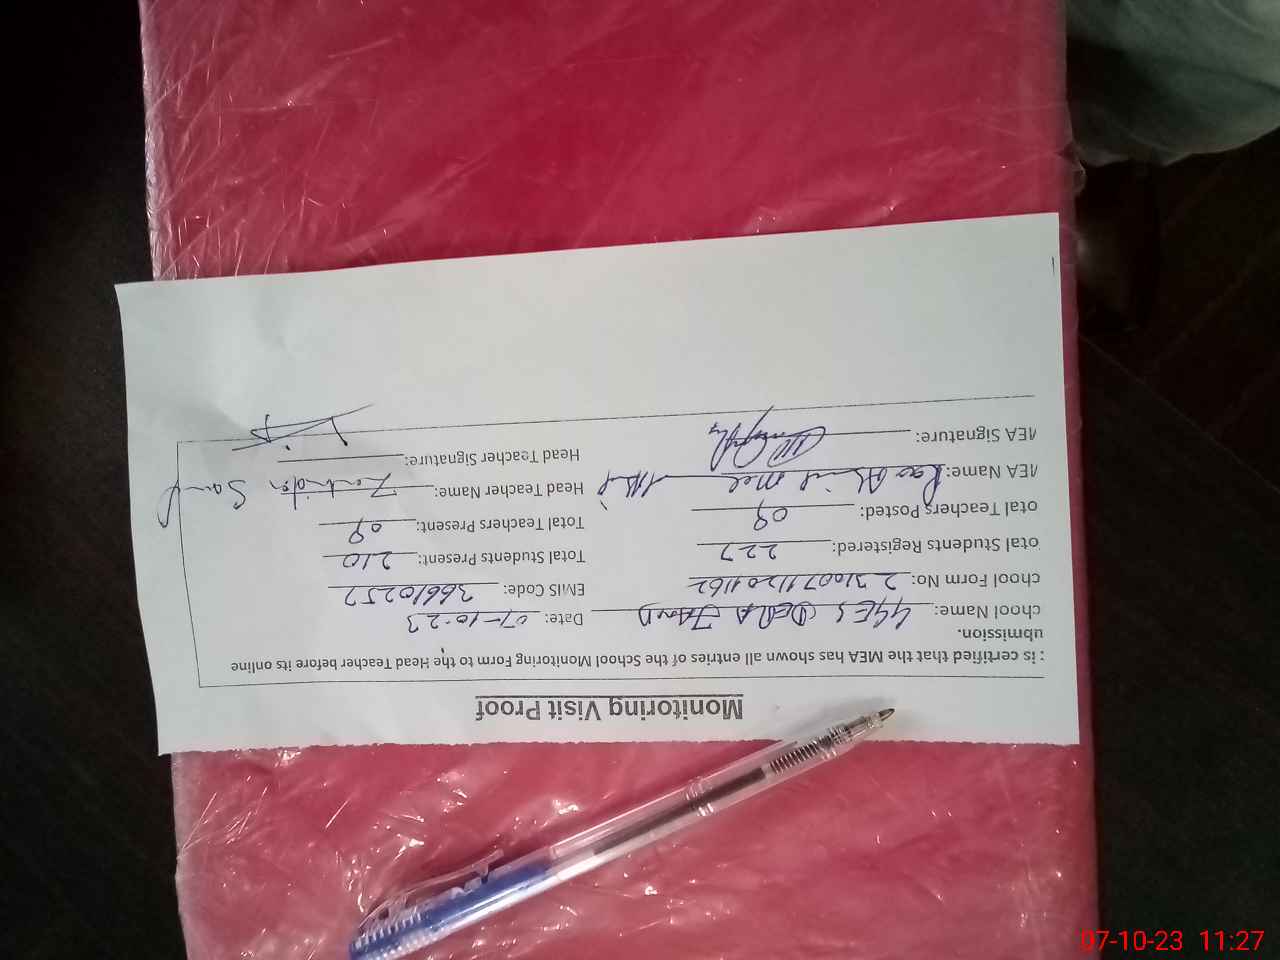 Monitoring Visit Proof
: is certified that the MEA has shown all entries of the School Monitoring Form to the Head Teacher before its online
ubmission.
chool Name: GGES DERA Date: 07-10-23
chool Form No: EMIS Code: 36610252
otal Students Registered: 227 Total Students Present: 210
otal Teachers Posted: 08 Total Teachers Present: 08
MEA Name: Rao Head Teacher Name:
MEA Signature: Head Teacher Signature:
07-10-23 11:27